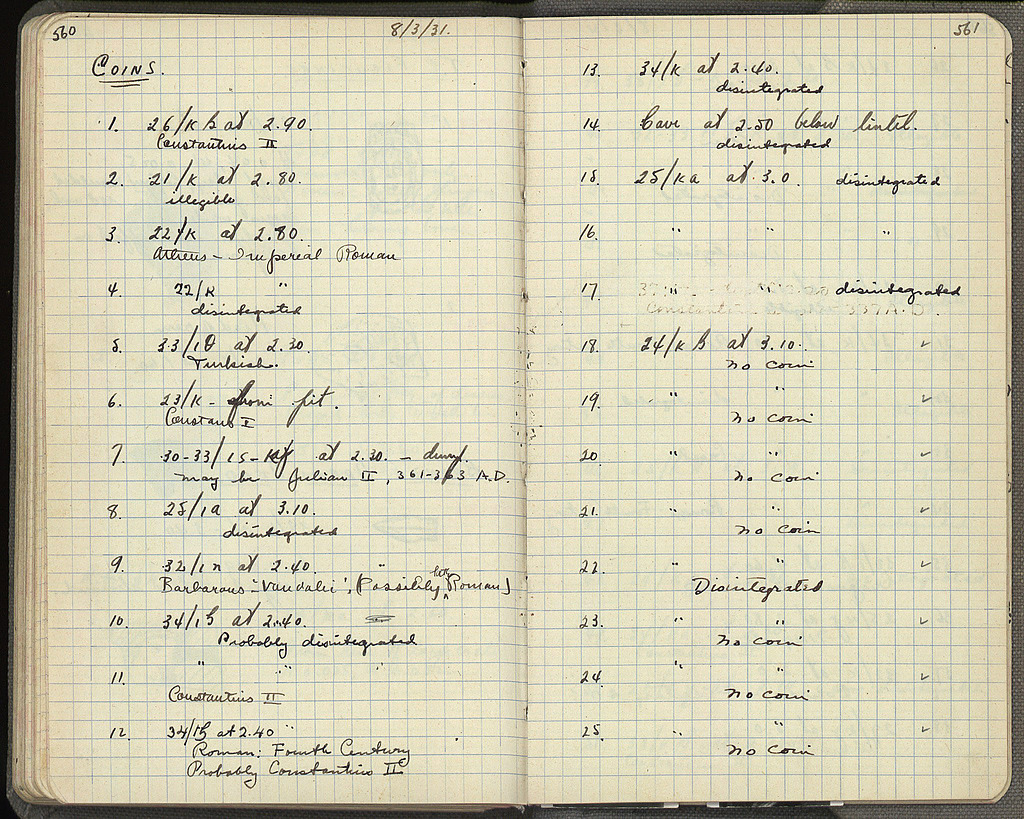 560
8/3/31.
COINS.
1. 26/K B at 2.90.
Constantius II
2. 21/K at 2.80.
illegible
3. 22/K at 2.80.
Athens – Imperial Roman
4. 22/K "
disintegrated
5. 33/ at 2.30.
Turkish.
6. 23/K – from pit.
Constans I
7. 30-33/ at 2.30. – dump.
may be Julian II, 361-363 A.D.
8. 25/ at 3.10.
disintegrated
9. 32/ at 2.40.
Barbarous – 'Vandalic', (Possibly late Roman)
10. 34/ at 2.40.
Probably disintegrated
11. " " "
Constantius II
12. 34/ at 2.40 "
Roman: Fourth Century
Probably Constantius II
561
13. 34/K at 2.40.
disintegrated
14. Cave at 2.50 below lintel.
disintegrated
15. 25/Ka at 3.0. disintegrated
16. " " "
17. " " disintegrated
18. 24/K B at 3.10. ✓
no coin
19. " " ✓
no coin
20. " " ✓
no coin
21. " " ✓
no coin
22. " "
Disintegrated
23. " " ✓
no coin
24. " " ✓
no coin
25. " " ✓
no coin